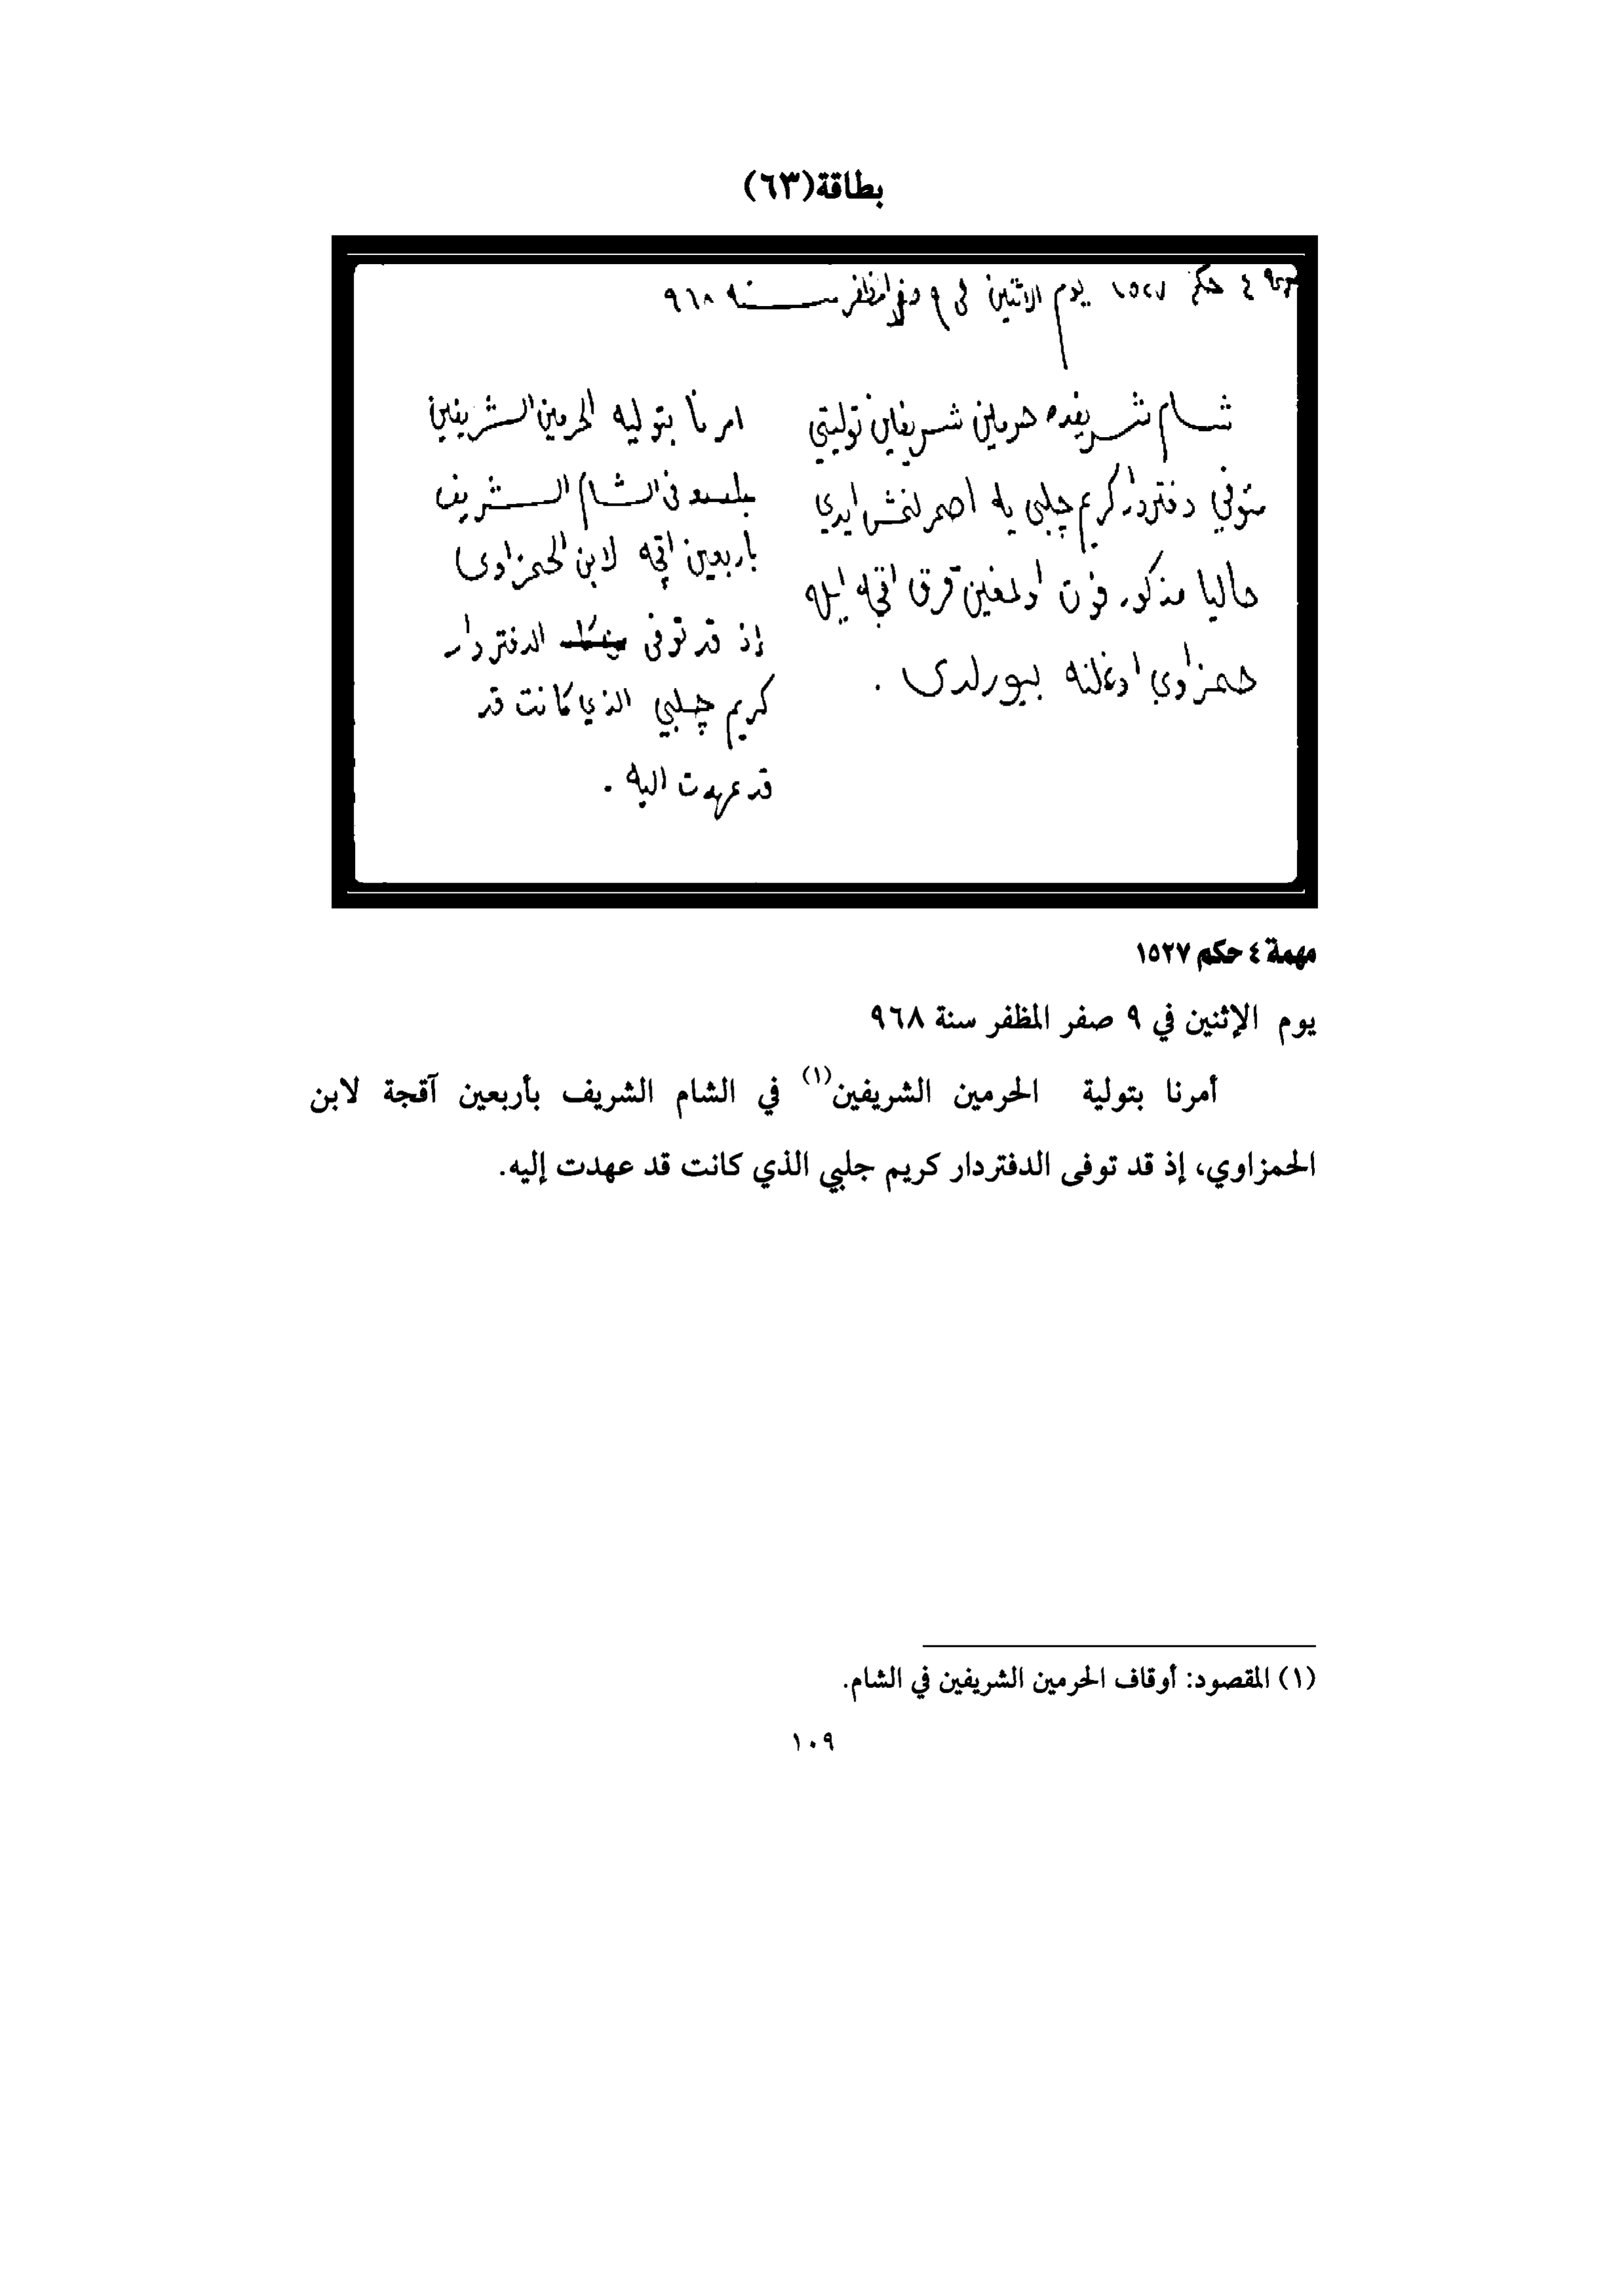 بطاقة(٦٣)
مهمة ٤ حكم ١٥٢٧ يوم الاثنين فى ٩ صفر المظفر سنه ٩٦٨
شام شريفده حرمين شريفين توليتي
متوفي دفتردار كريم چلبى يه اصمرلنمش ايدي
حاليا مذكور فوت اولمغين قرق اقچه ايله
حمزاوي اوغلنه بيورلدى .
امرنا بتوليه الحرمين الشريفين
فى الشام الشريف
باربعين اقچه لابن الحمزاوى
إذ قد توفى الدفتردار
كريم چلبي الذي كانت قد
قد عهدت اليه .
مهمة ٤ حكم ١٥٢٧
يوم الإثنين في ٩ صفر المظفر سنة ٩٦٨
أمرنا بتولية الحرمين الشريفين(١) في الشام الشريف بأربعين آقجة لابن
الحمزاوي، إذ قد توفى الدفتردار كريم جلبي الذي كانت قد عهدت إليه.
(١) المقصود: أوقاف الحرمين الشريفين في الشام.
١٠٩